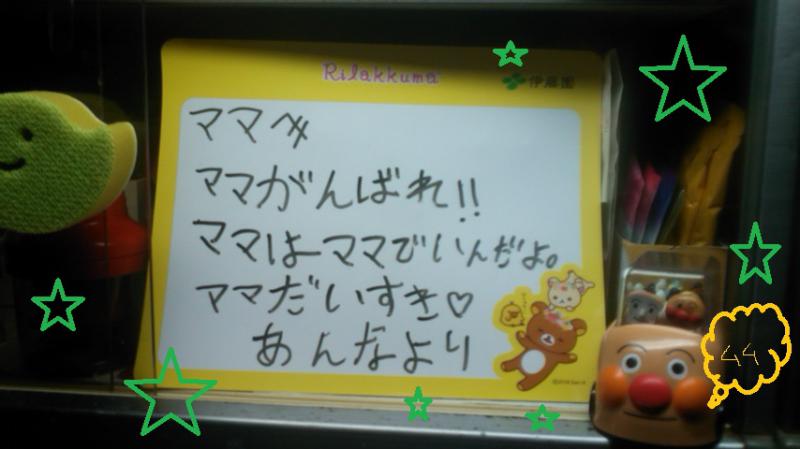 Rilakkuma
伊藤園
ママへ
ママがんばれ!!
ママはーママでいんだよ。
ママだいすき♡
あんなより
44